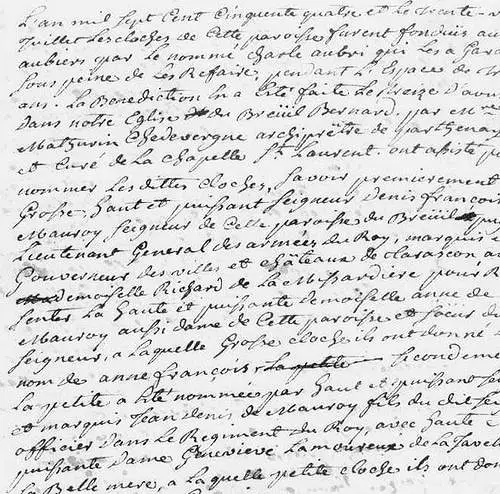 L'an mil sept Cent Cinquente quatre et le trente
Juillet Les cloches de Cette paroisse furent fondües au
aubiers par Le nommé charle aubri qui Les a Gara
Sous peine de Les Refaire, pendant L'Espace de
ans. La Benediction En a Eté faite Le treize d'aou
dans notre Eglise du Breüil Bernard. par Mre
Mathurin Chedevergne archiprêtre de parthenay
et Curé de La Chapelle St Laurent. ont assisté p
nommer Lesdittes Cloches, Savoir premierement
Grosse, haut et puissant Seigneur Denis françois
Mauroy Seigneur de Cette paroisse du Breüil
Lieutenant General des armées du Roy, marquis
Gouverneur des villes et châteaux de tarascon
demoiselle Richard de La Missardière pour R
senter La haute et puissante demoiselle anne de
Mauroy aussi dame de Cette paroisse et Soeur du
Seigneur, a Laquelle Grosse Cloche ils ont donné
nom de anne françois, La petite secondeme
La petite a Eté nommée par haut et puissant Se
et marquis Jean denis de Mauroy fils du dit Sei
officier dans Le Regiment du Roy, avec haute
puissante Dame Genevieve Lamoureux de La Javel
La Belle mere, a Laquelle petite Cloche ils ont don